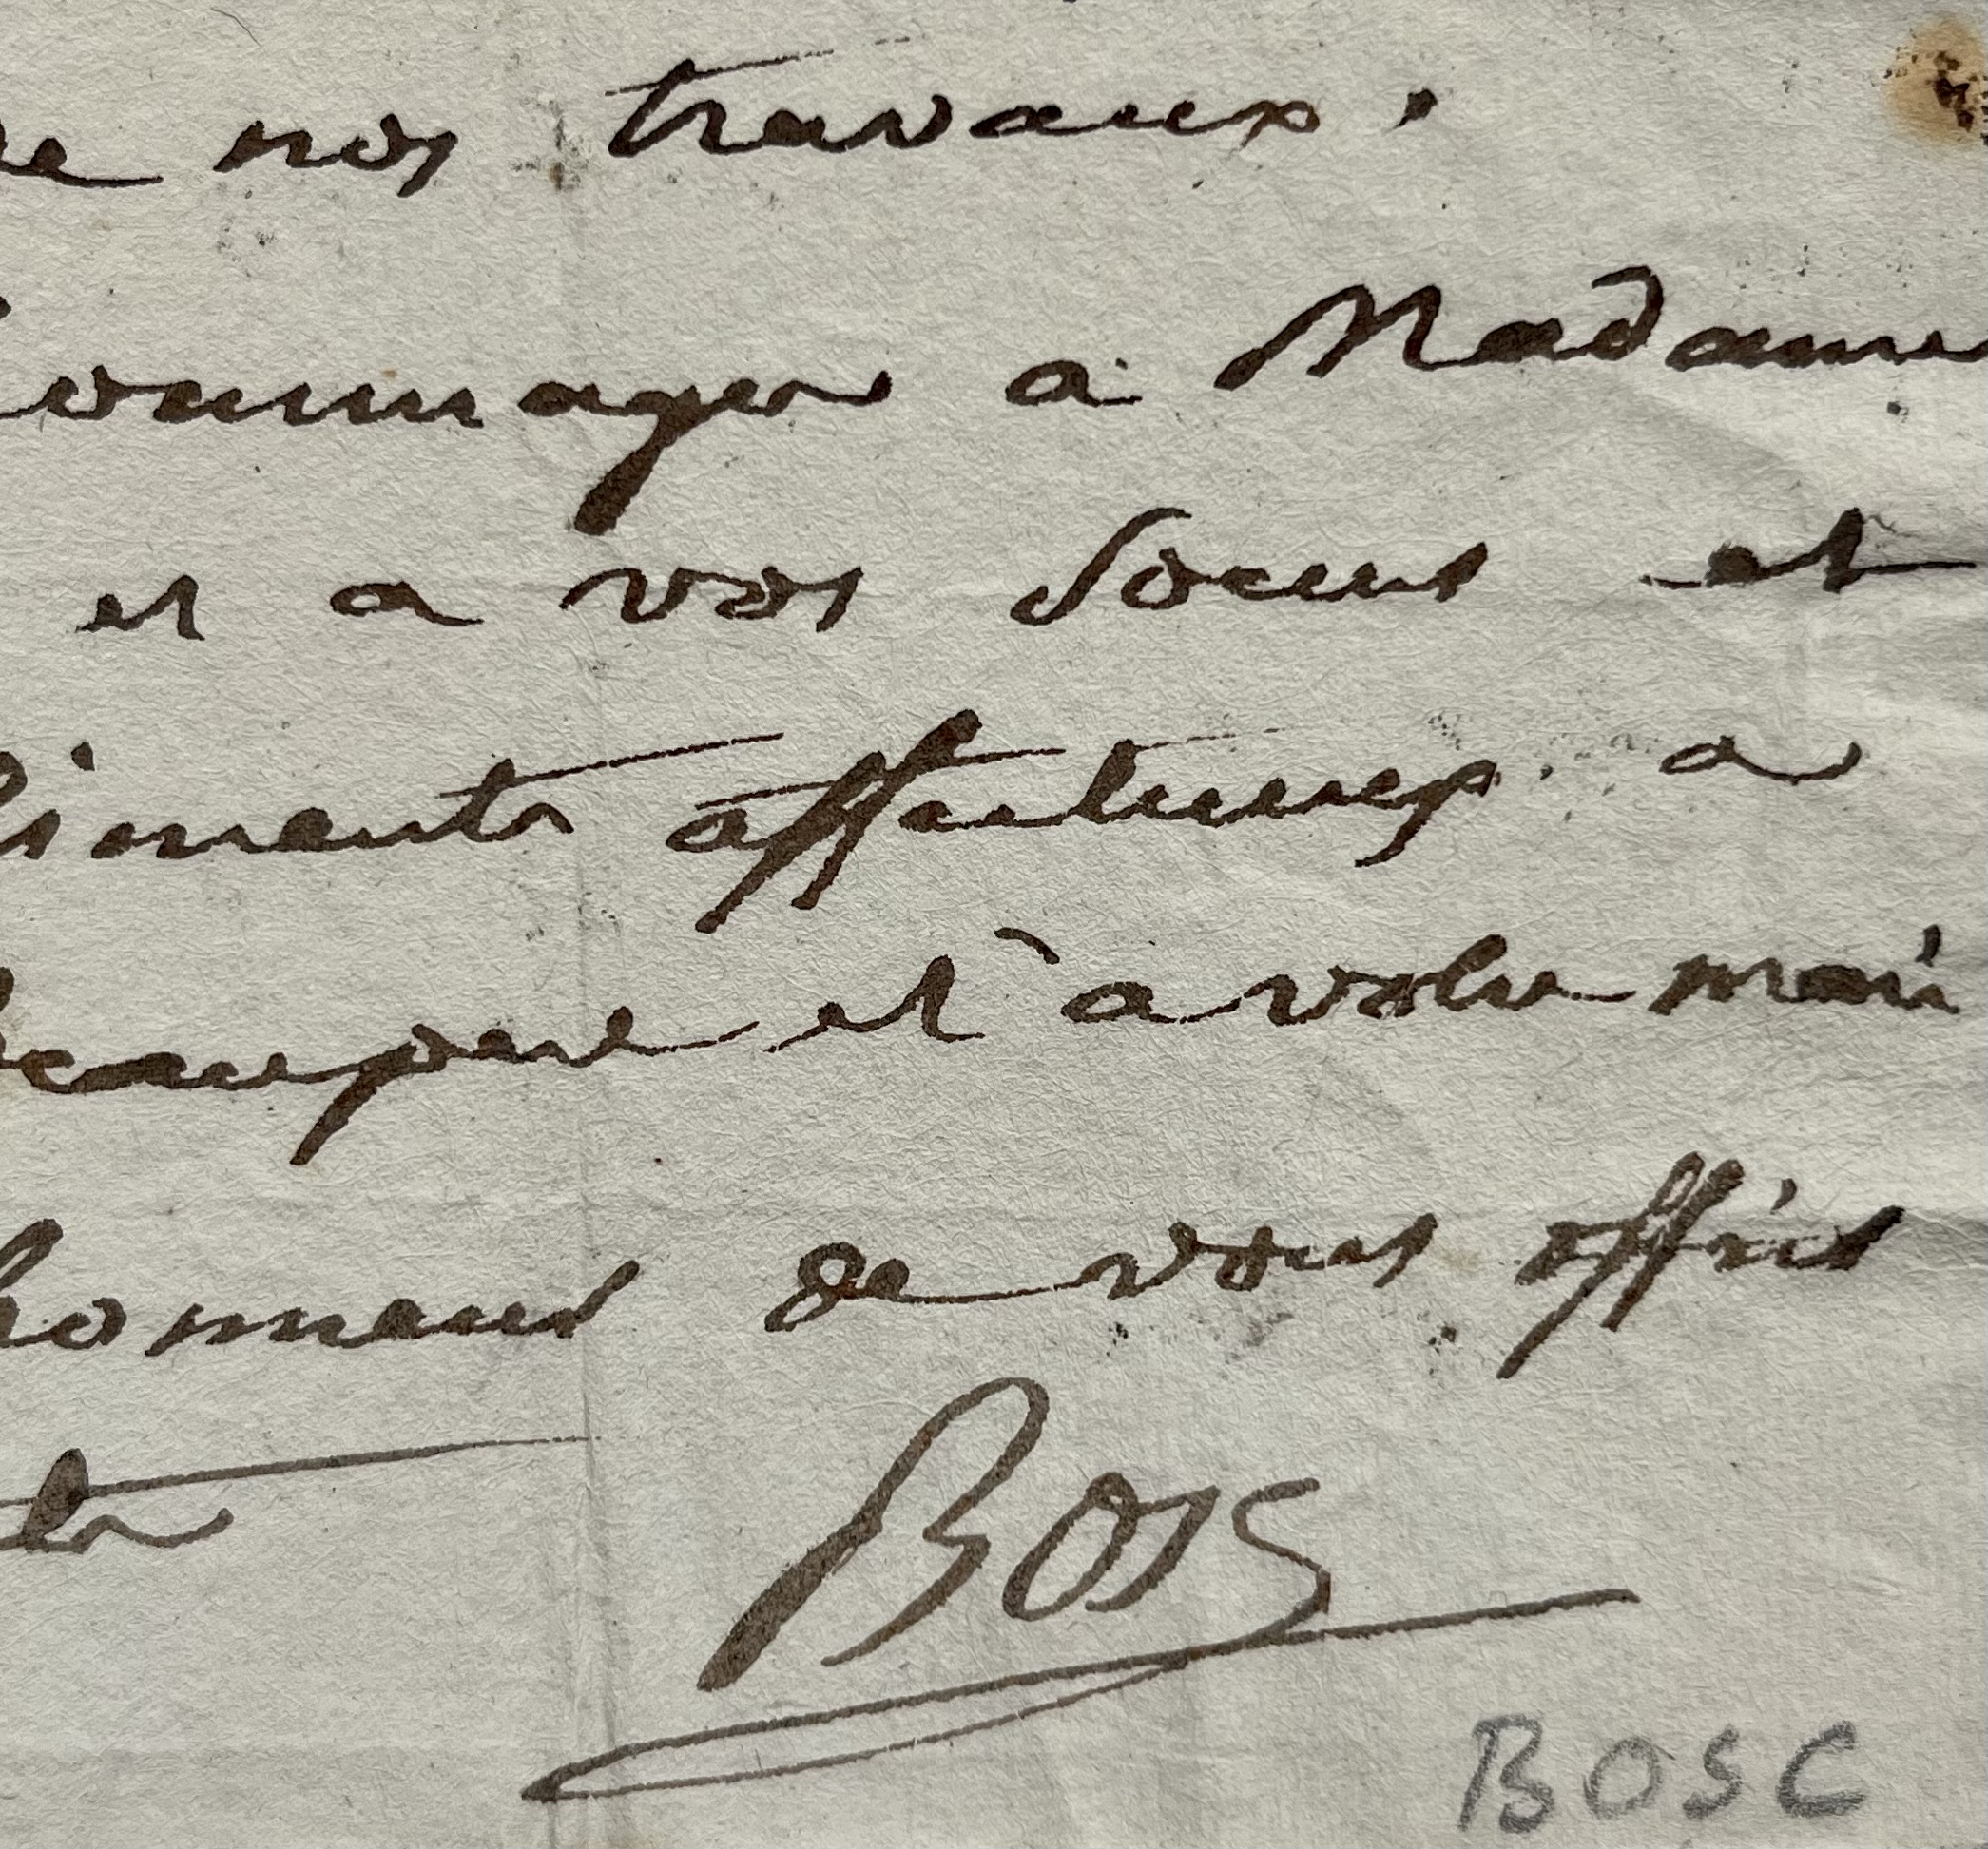 de nos travaux.
hommages à Madame
et a vos soeurs et
pliments affectueux a
beaupere et à votre mari
honneur de vous offrir
Bosc
BOSC